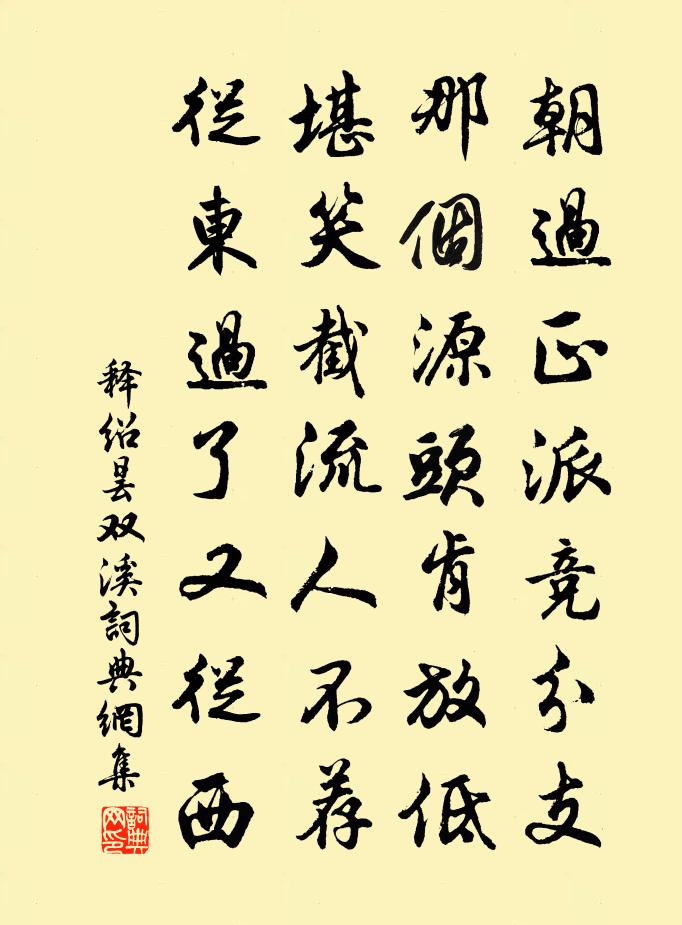 朝過正派竞分支
那個源頭肯放低
堪笑截流人不荐
從東過了又從西
释绍昙双溪詞典網集
詞典网印